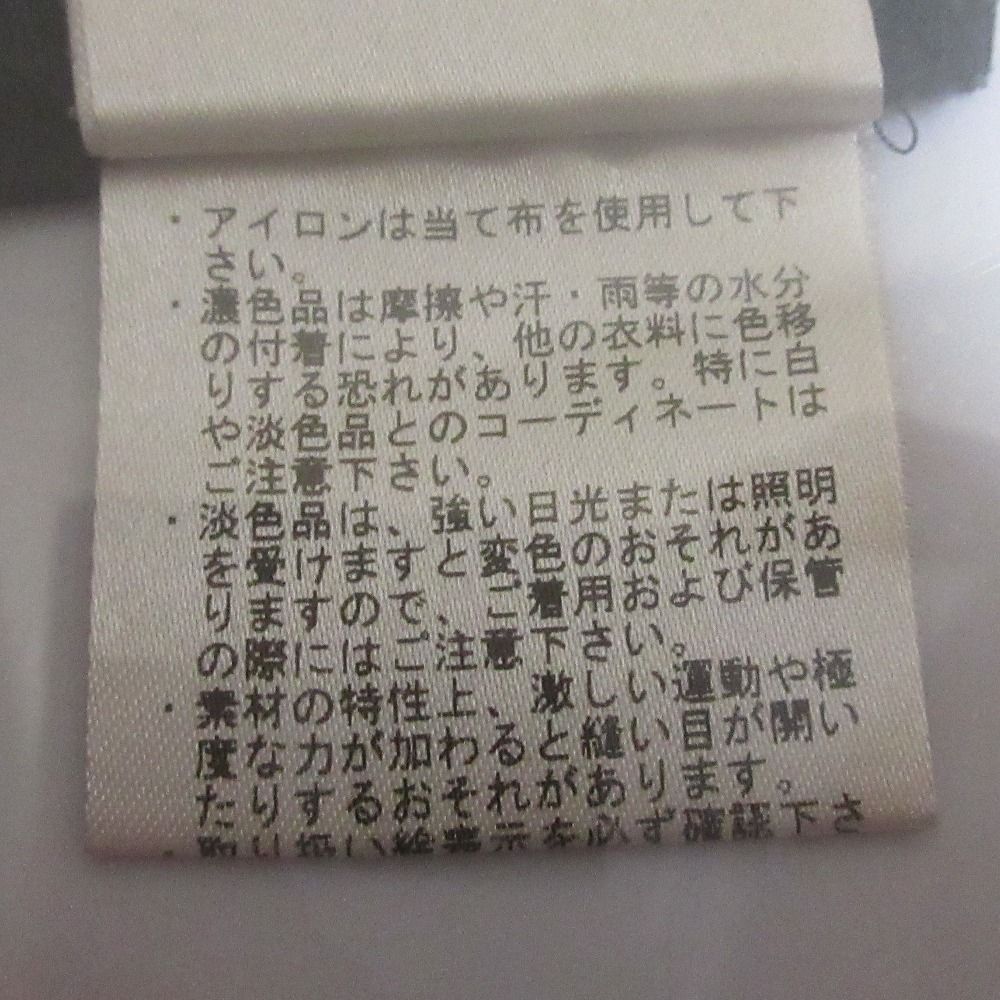 ・アイロンは当て布を使用して下
さい。
・濃色品は摩擦や汗・雨等の水分
のり付着により、他の衣料に色移
りする恐れがあります。特に白
や淡色品とのコーディネートは
ご注意下さい。
・淡色品は、強い日光または照明
を受けますと、変色のおそれがあ
りますので、ご着用および保管
の際にはご注意下さい。
・素材の特性上、激しい運動や極
度な力が加わると縫い目が開い
たりするおそれがあります。
・取り扱い絵表示を必ず確認下さ